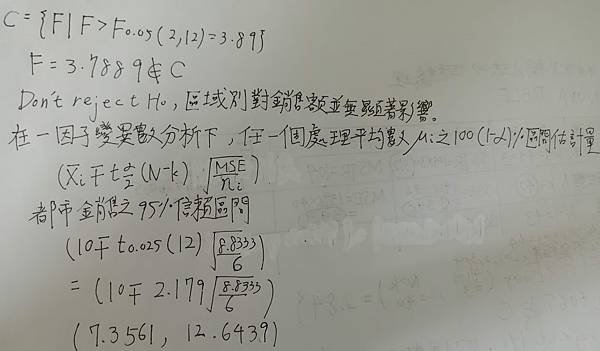 C = {F | F > F0.05(2,12) = 3.89}
F = 3.7889 ∉ C
Don't reject Ho, 區域別對銷售額並無顯著影響。
在一因子變異數分析下, 任一個處理平均數 μi 之 100(1-α)% 區間估計量
(X̄i ∓ t α/2 (N-k) √(MSE/ni))
都市銷售之 95% 信賴區間
(10 ∓ t0.025(12) √(8.8333/6))
= (10 ∓ 2.179 √(8.8333/6))
(7.3561, 12.6439)